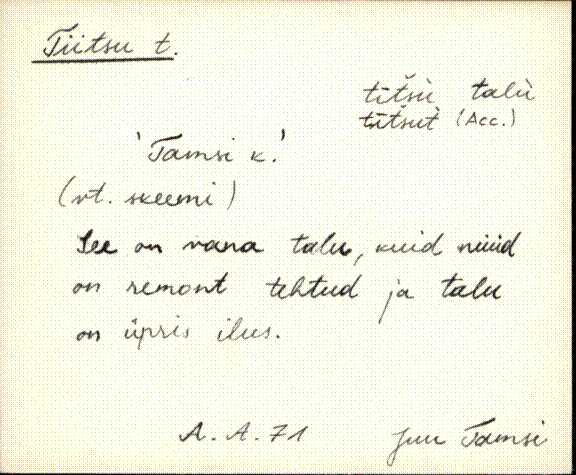 Tiitsu t.
tītšù talù
tītšut̀ (Acc.)
'Tamsi k.'
(vt. skeemi)
See on vana talu, kuid nüüd
on remont tehtud ja talu
on üpris ilus.
A. A. 71 Juu Tamsi